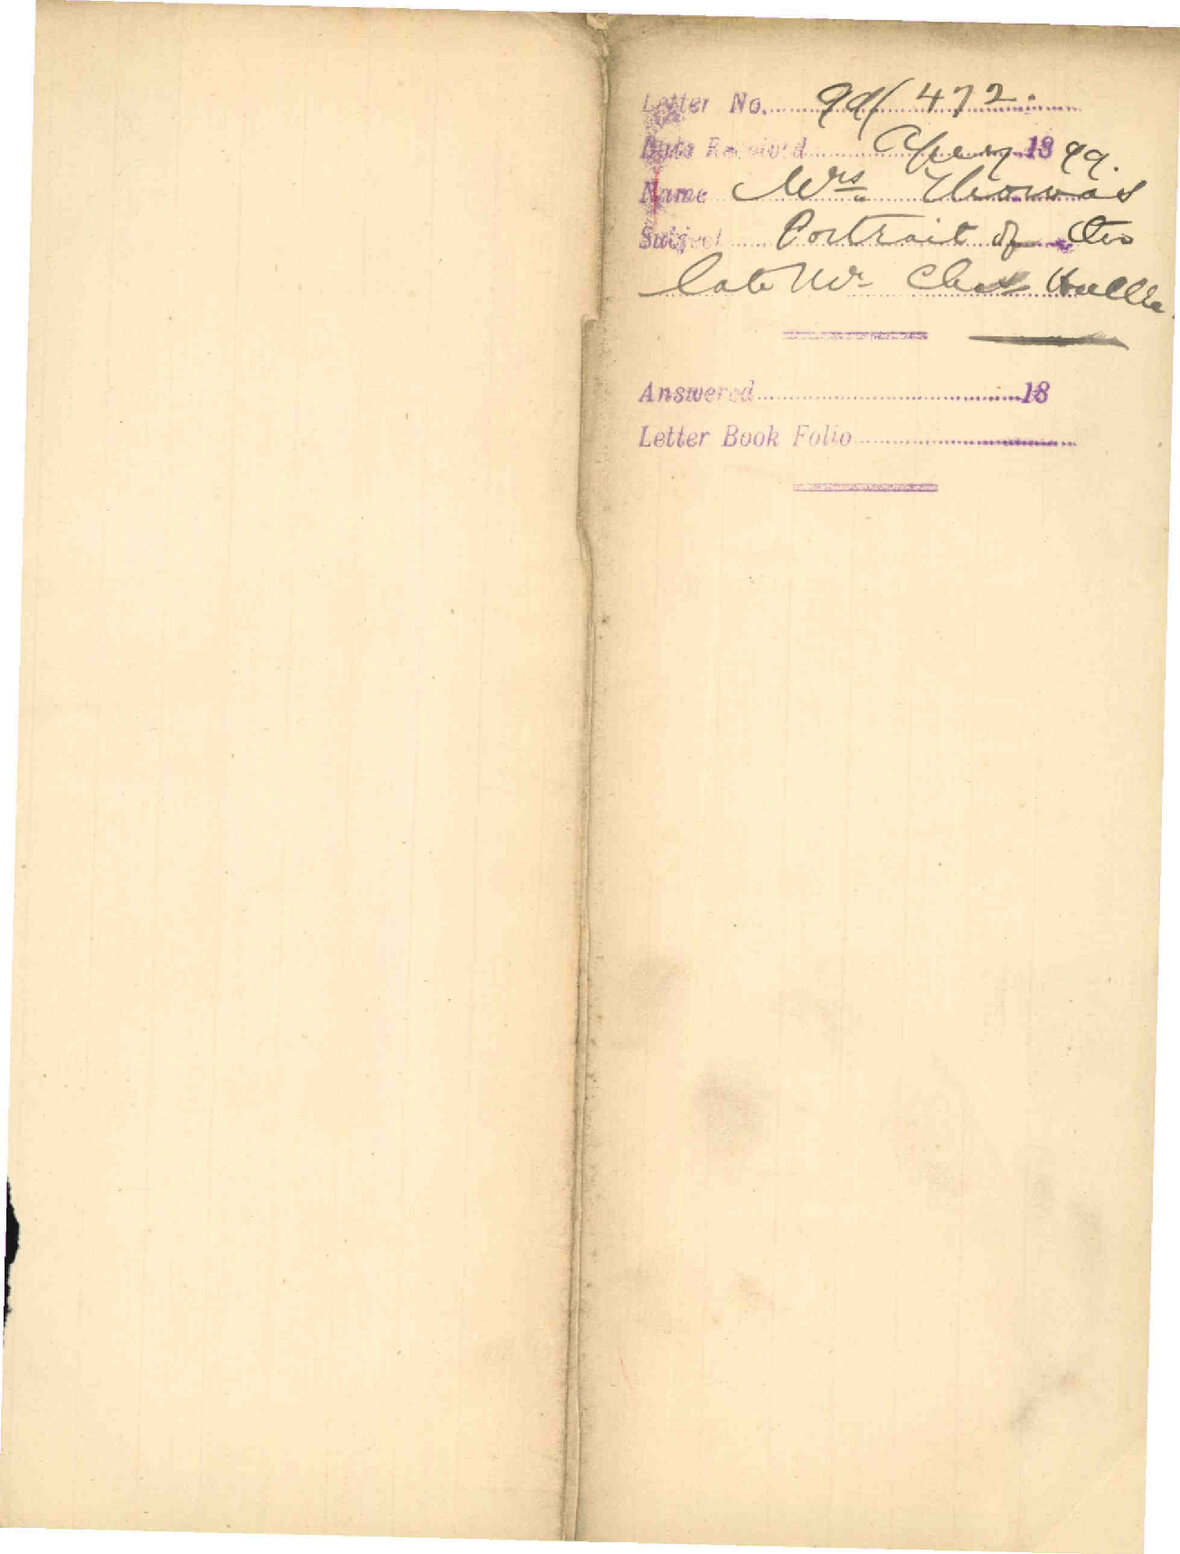 Letter No. 99/472.
Date Received Apr 17 1899.
Name Mrs. Thomas
Subject Portrait of the
late Mr Chas
Answered 18
Letter Book Folio